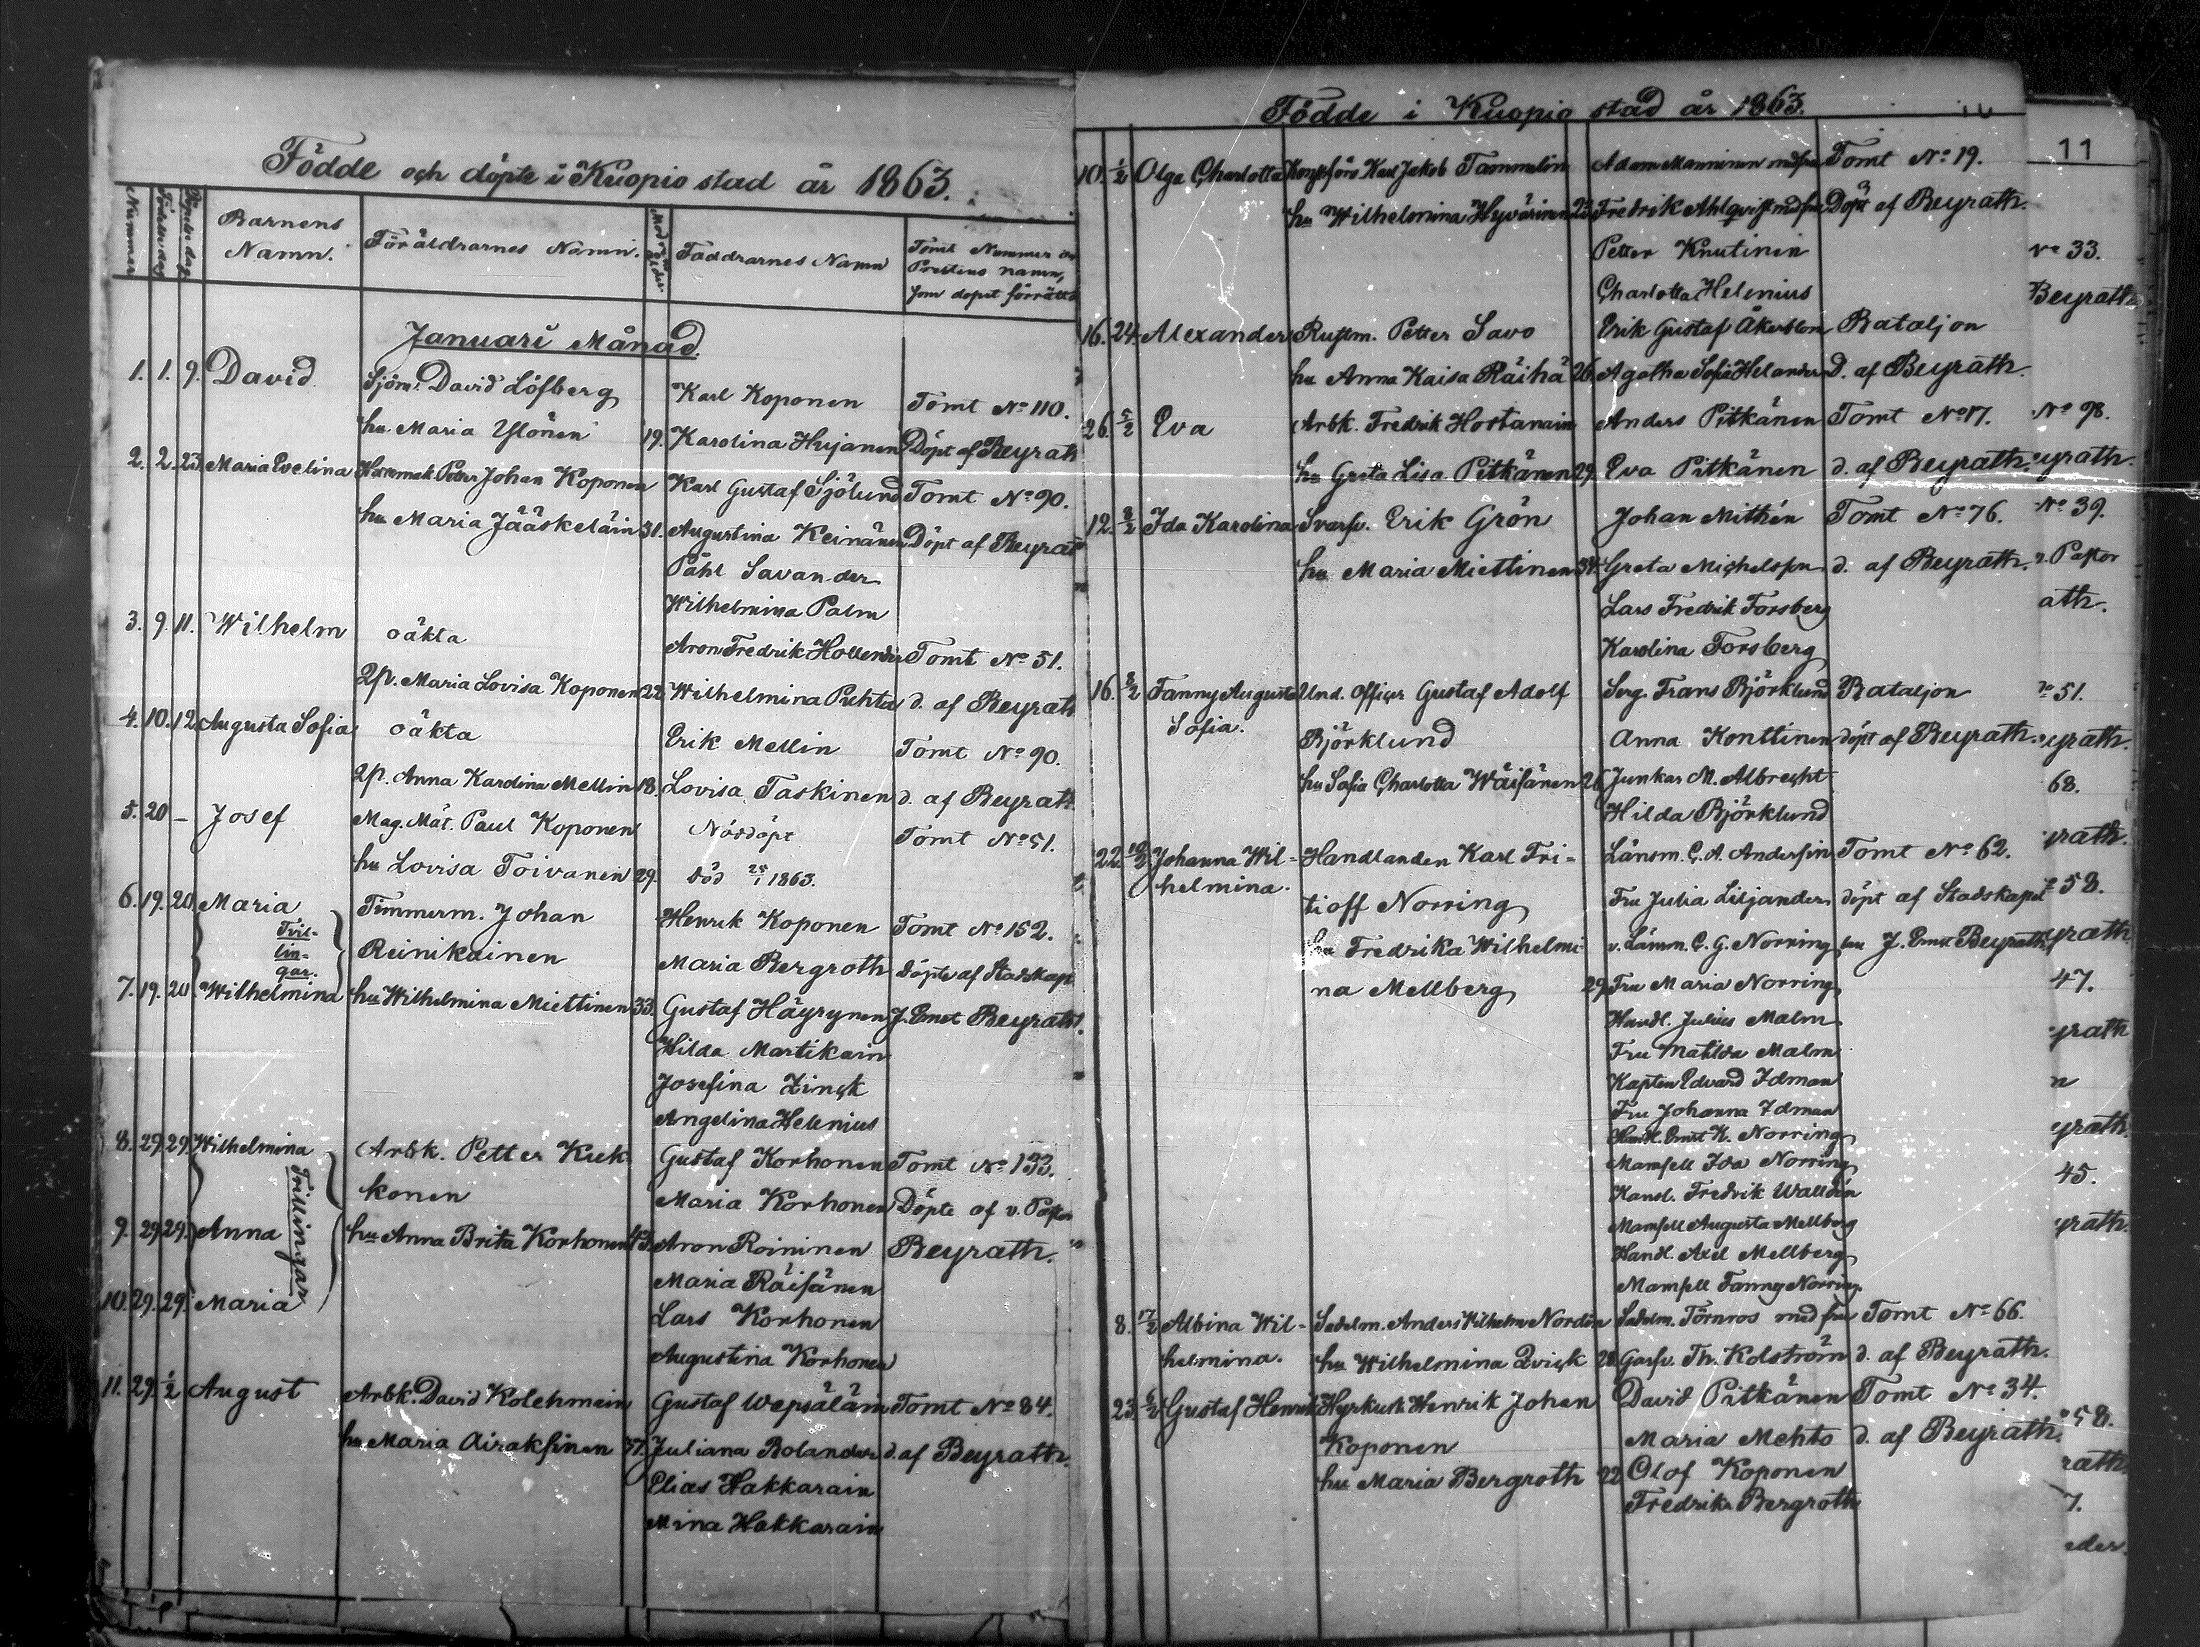 Födde och döpte i Kuopio stad år 1863.
Nummer
Födelsedag
Döpelsedag
Barnens Namn.
Föräldrarnes Namn.
Moderns ålder
Faddrarnes Namn
Tomt Nummer
Prestens namn,
som dopet förrätt
Januari Månad.
1. 1. 9. David Sjöm. David Löfberg Karl Koponen Tomt No 110.
hu Maria Ylönen 19. Karolina Hujanen Döpt af Beyrath
2. 2. 23. Maria Evelina Petter Johan Koponen Karl Gustaf Sjölund Tomt No 90.
hu Maria Jääskeläin 31. Augustina Keinänen Döpt af Beyrat
Påhl Savander
Wilhelmina Palm
3. 9. 11. Wilhelm oäkta Aron Fredrik Hollender Tomt No 51.
2p. Maria Lovisa Koponen 22. Wilhelmina Puhta d. af Beyrath
4. 10. 12. Augusta Sofia oäkta Erik Mellin Tomt No 90.
2p. Anna Karolina Mellin 18. Lovisa Taskinen d. af Beyrath.
5. 20 – Josef Mag. Mät. Paul Koponen Nöddöpt Tomt No 51.
hu Lovisa Toivanen 29. död 1863.
6. 19. 20. Maria Timmerm. Johan Henrik Koponen Tomt No 152.
Tvil-
lin-
gar.
Reinikainen Maria Bergroth döpte af Stadskap
7. 19. 20 Wilhelmina hu Wilhelmina Miettinen 33. Gustaf Häyrynen J. Ernst Beyrath.
Hilda Martikain
Josefina Zinck
Angelina Helenius
8. 29. 29. Wilhelmina Arbk. Petter Kuk- Gustaf Korhonen Tomt No 133.
Trillingar
konen Maria Korhonen Döpte af v. Pastor
9. 29. 29. Anna hu Anna Brita Korhonen 43. Aron Roininen Beyrath.
Maria Räisänen
10. 29. 29. Maria Lars Korhonen
Augustina Korhonen
11. 29. 1/2 August Arbk. David Kolehmain Gustaf Wepsäläin Tomt No 84.
hu Maria Airaksinen 37. Juliana Bolander d. af Beyrath.
Elias Hakkarain
Mina Hakkarain
Födde i Kuopio stad år 1863.
10. 1/2 Olga Charlotta Karl Jakob Tammelin Adam Manninen med fru Tomt No 19.
hu Wilhelmina Hyvärinen 23. Fredrik Ahlqvist med fru Döpt af Beyrath.
Petter Knutinen
Charlotta Helenius
16. 24. Alexander Rustm. Petter Savo Erik Gustaf Åkerblom Bataljon
hu Anna Kaisa Räihä 26. Agatha Sofia Helander D. af Beyrath.
26. 5/2 Eva Arbk. Fredrik Hostanain Anders Pitkänen Tomt No 17.
hu Greta Lisa Pitkänen 29. Eva Pitkänen d. af Beyrath.
12. 8/2 Ida Karolina Svarfv. Erik Grön Johan Mithén Tomt No 76.
hu Maria Miettinen 34. Greta Michelson d. af Beyrath.
Lars Fredrik Forsberg
Karolina Forsberg
16. 8/2 Fanny Augusta Und. Officer Gustaf Adolf Serg. Frans Björklund Bataljon
Sofia. Björklund Anna Konttinen döpt af Beyrath.
hu Sofia Charlotta Wäisänen 26. Junkar M. Albrecht
Hilda Björklund
22. Johanna Wil- Handlanden Karl Fri- Länsm. C. A. Andersin Tomt No 62.
helmina. tioff Norring Fru Julia Liljander döpt af Stadskapel
hu Fredrika Wilhelmi v. Länsm. C. G. Norring lan J. Ernst Beyrath
na Mellberg 29. Fru Maria Norring
Handl. Julius Malm
Fru Matilda Malm
Kapten Edvard Idman
Fru Johanna Idman
Handl. Ernst K. Norring
Mamsell Ida Norring
Handl. Fredrik Walldén
Mamsell Augusta Mellberg
Handl. Axel Mellberg
Mamsell Fanny Norring
8. 17/2 Albina Wil- Sadelm. Anders Wilhelm Nordin Sadelm. Törnros med fru Tomt No 66.
helmina. hu Wilhelmina Qvick 28. Garfv. Th. Kolström d. af Beyrath.
23. 6/2 Gustaf Henrik Hyrkusk Henrik Johan David Pitkänen Tomt No 34.
Koponen Maria Mehto d. af Beyrath.
hu Maria Bergroth 22. Olof Koponen
Fredrika Bergroth
11
No 33.
Beyrath
No 98.
yrath.
No 39.
v. Pastor
ath.
51.
yrath.
68.
yrath.
58.
yrath
47.
yrath
n
yrath.
45.
yrath.
58.
rath.
7.
eder.